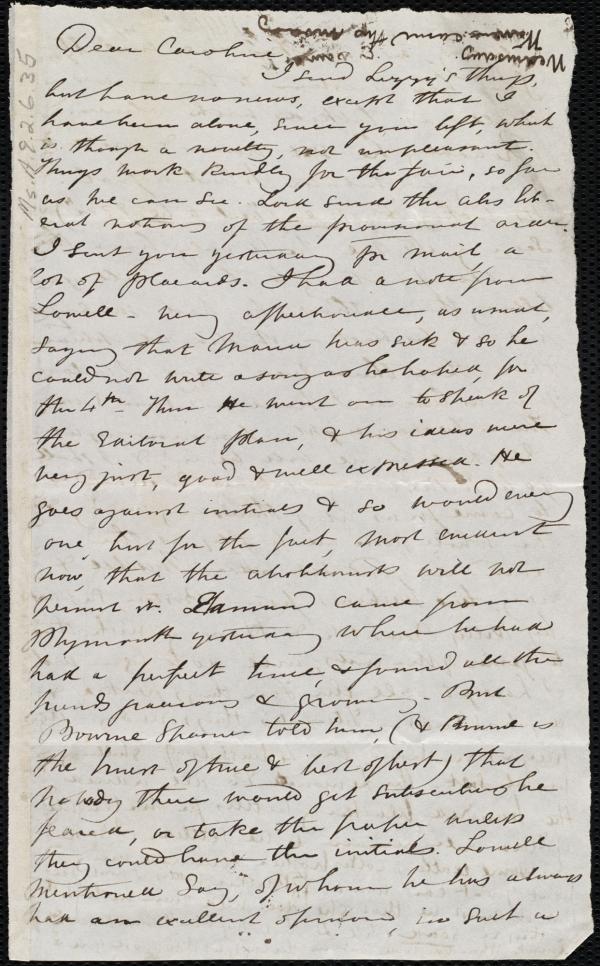 Dear Caroline
I send Lizzy's things,
but have no news, except that I
have been alone, since you left, which
is though a novelty, not unpleasant.
Things work kindly for the fair, so far
as we can see. Lord send the abs lib-
eral notions of the provisional order.
I sent you yesterday pr mail, a
lot of placards. I had a note from
Lowell - very affectionate, as usual,
saying that Maria was sick & so he
could not write a song as he hoped, for
the 4th. Then He went on to speak of
the Editorial plan, & his ideas were
very just, good & well expressed. He
goes against initials & so would every
one, but for the fact, most evident
now, that the abolitionists will not
permit it. Edmund came from
Plymouth yesterday where he had
had a perfect time, & found all the
friends gracious & growing. But
Bourne Spooner told him, (& Bourne is
the truest of true & best of best) that
nobody there would get subscribers he
feared, or take the paper unless
they could have the initials. Lowell
mentioned Gay, of whom he has always
had an excellent opinion, in such a
Ms. A.9.2.6.35
Wednesday.